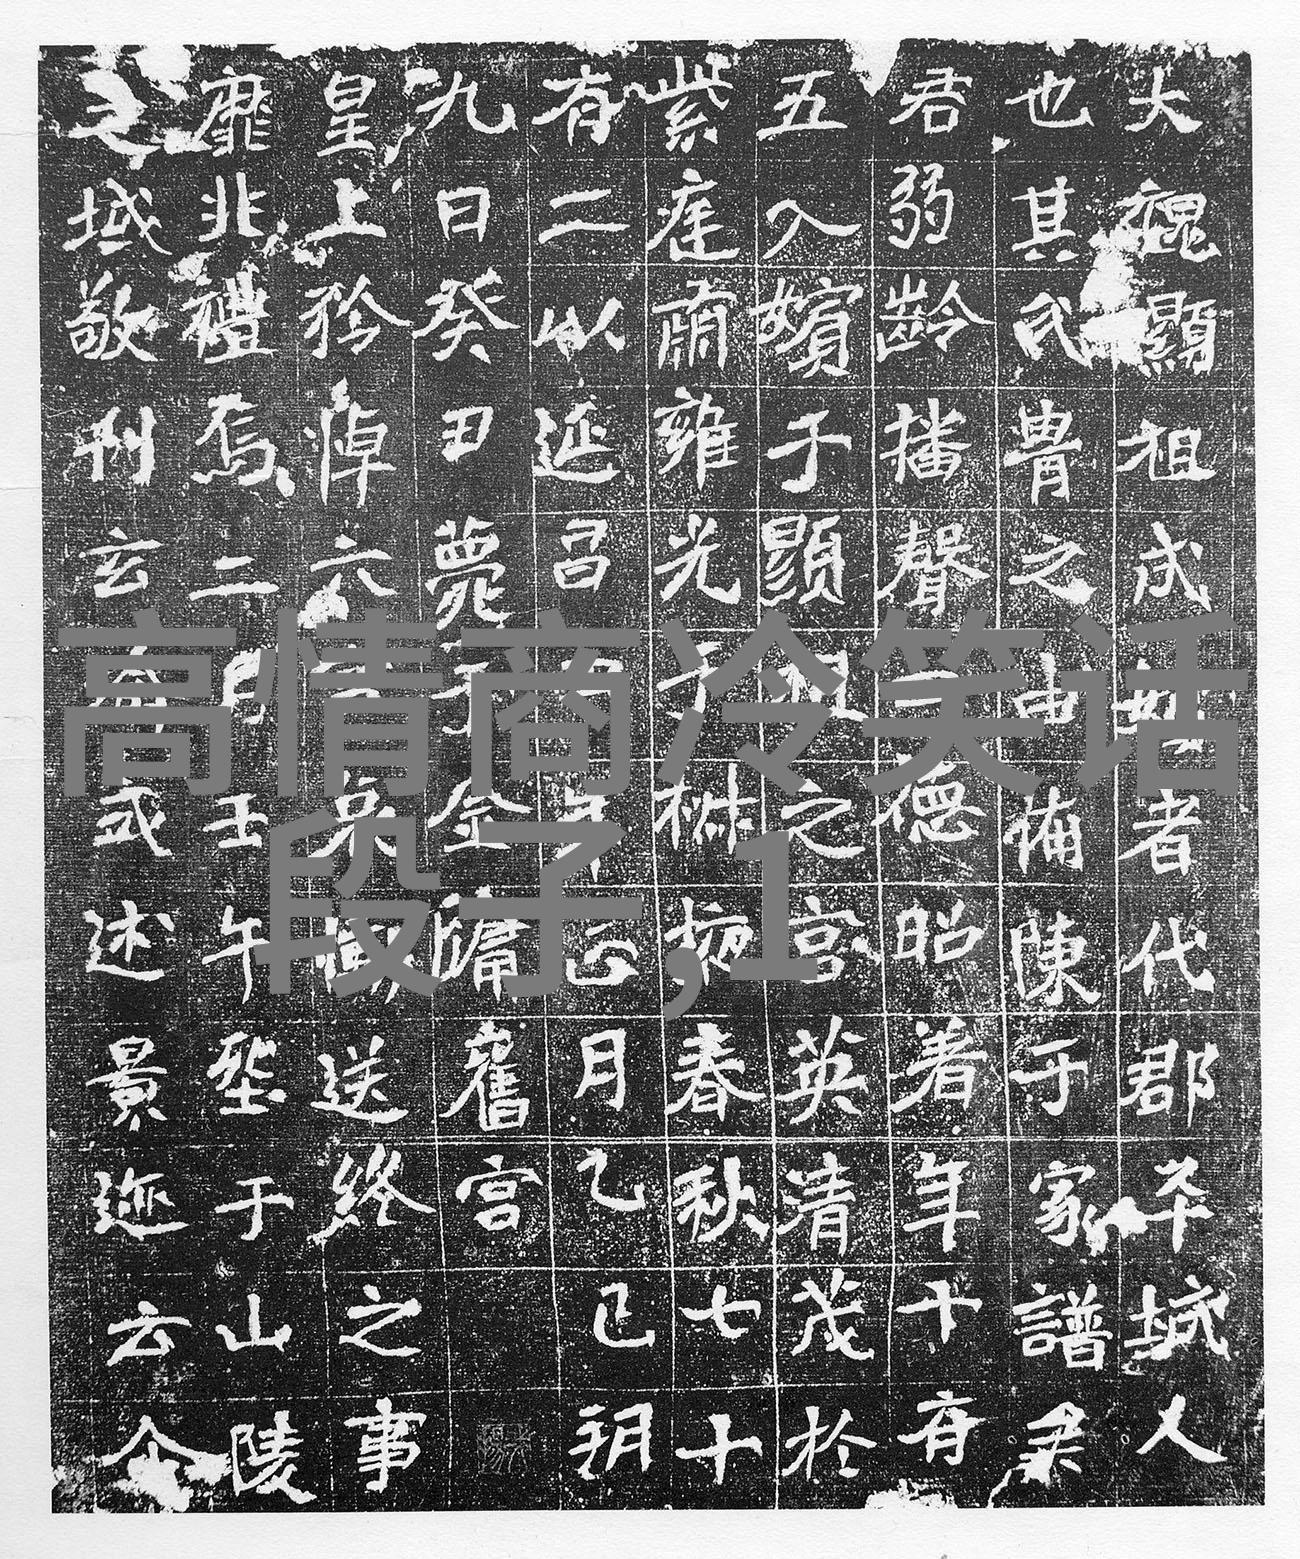 大魏顯祖成嬪者代郡平城人
也其氏曹之由備陳于家譜柔
君弱齡播聲 德昭着年十有
五入嬪于顯祖之宮英清茂於
紫庭肅雍光于椒掖春秋七十
有二以延昌 年正月乙巳朔
九日癸丑薨于金墉舊宮
皇上矜悼六 哀慟送終之事
靡非禮焉二月壬午塟于山陵
之域敬刊玄 式述景迹云
高情商冷笑话
段子,1